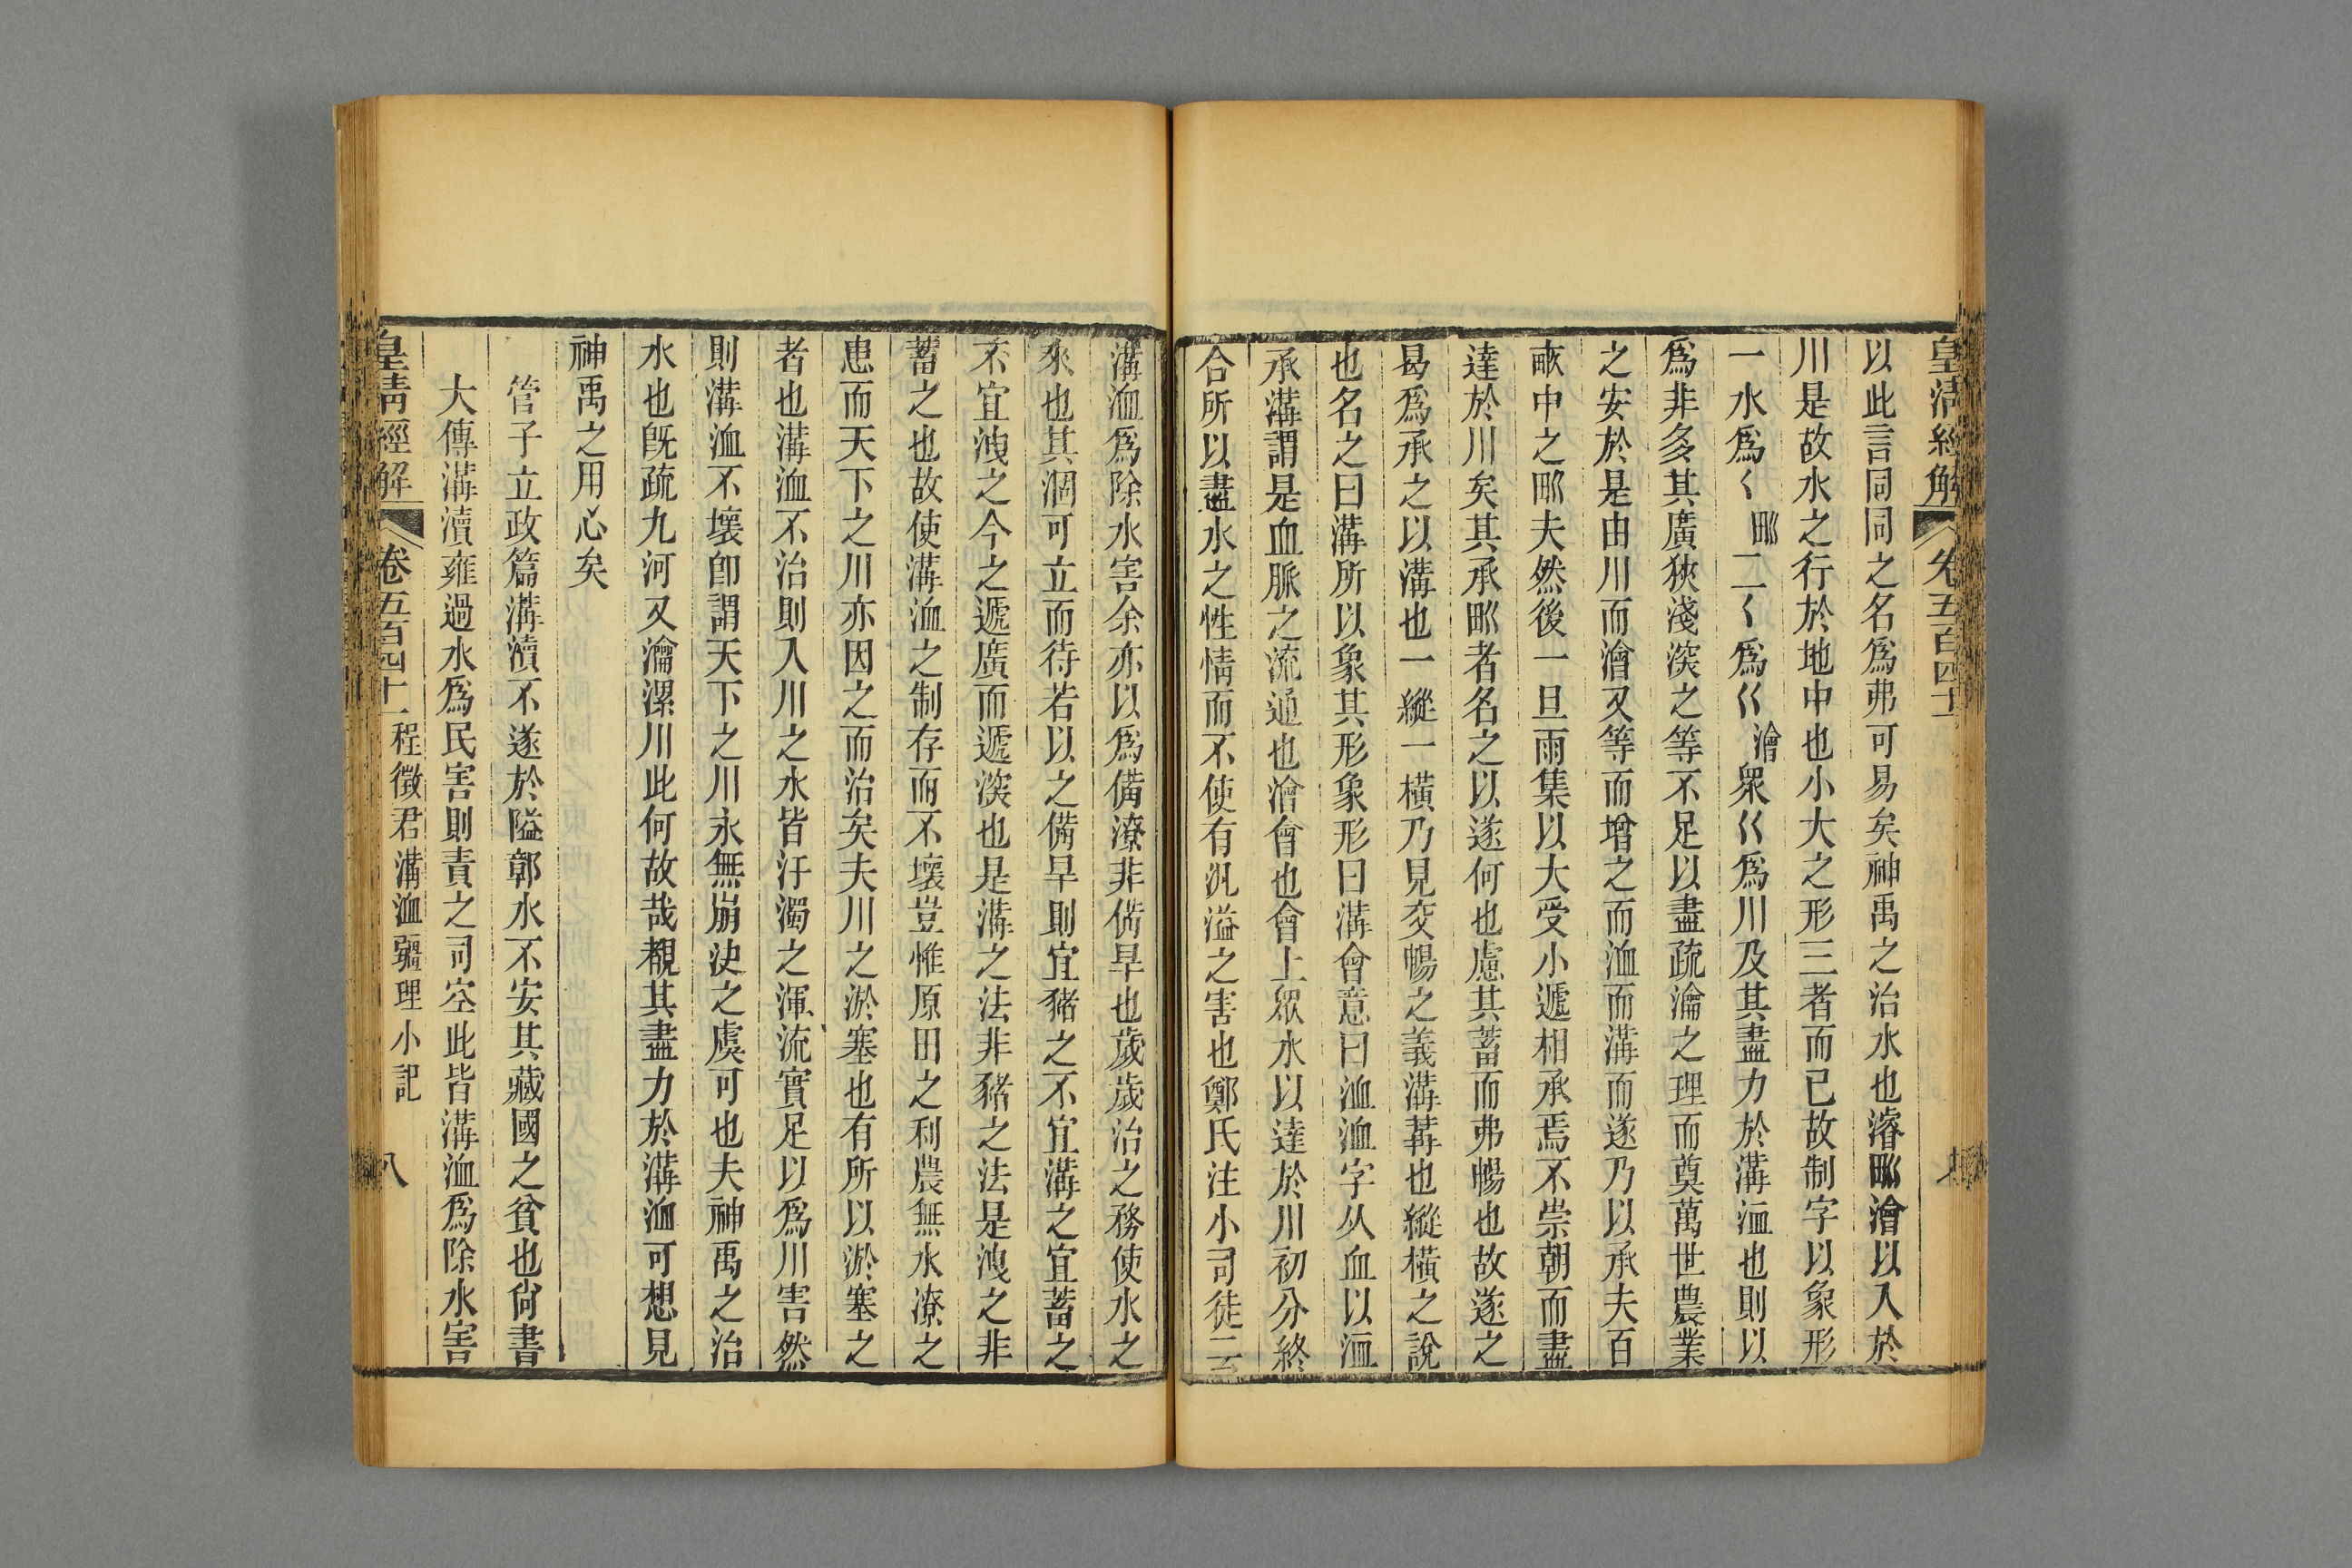 皇清經解 卷五百四十一
以此言同同之名爲弗可易矣神禹之治水也濬甽澮以入於
川是故水之行於地中也小大之形三者而已故制字以象形
一水爲〈甽二〈爲巜澮眾巜爲川及其盡力於溝洫也則以
爲非多其廣狹淺深之等不足以盡疏瀹之理而奠萬世農業
之安於是由川而澮又等而增之而洫而溝而遂乃以承夫百
畞中之甽夫然後一旦雨集以大受小遞相承焉不崇朝而盡
達於川矣其承甽者名之以遂何也慮其蓄而弗暢也故遂之
曷爲承之以溝也一縱一橫乃見交暢之義溝冓也縱橫之說
也名之曰溝所以象其形象形曰溝會意曰洫洫字从血以洫
承溝謂是血脈之流通也澮會也會上眾水以達於川初分終
合所以盡水之性情而不使有汎溢之害也鄭氏注小司徒云
溝洫爲除水害余亦以爲備潦非備旱也歲歲治之務使水之
來也其涸可立而待若以之備旱則宜豬之不宜溝之宜蓄之
不宜洩之今之遞廣而遞深也是溝之法非豬之法是洩之非
蓄之也故使溝洫之制存而不壞豈惟原田之利農無水潦之
患而天下之川亦因之而治矣夫川之淤塞也有所以淤塞之
者也溝洫不治則入川之水皆汙濁之渾流實足以爲川害然
則溝洫不壞卽謂天下之川永無崩決之虞可也夫神禹之治
水也旣疏九河又瀹漯川此何故哉覩其盡力於溝洫可想見
神禹之用心矣
管子立政篇溝瀆不遂於隘鄣水不安其藏國之貧也尙書
大傳溝瀆雍過水爲民害則責之司空此皆溝洫爲除水害
皇清經解 卷五百四十一 程徵君溝洫疆理小記 八